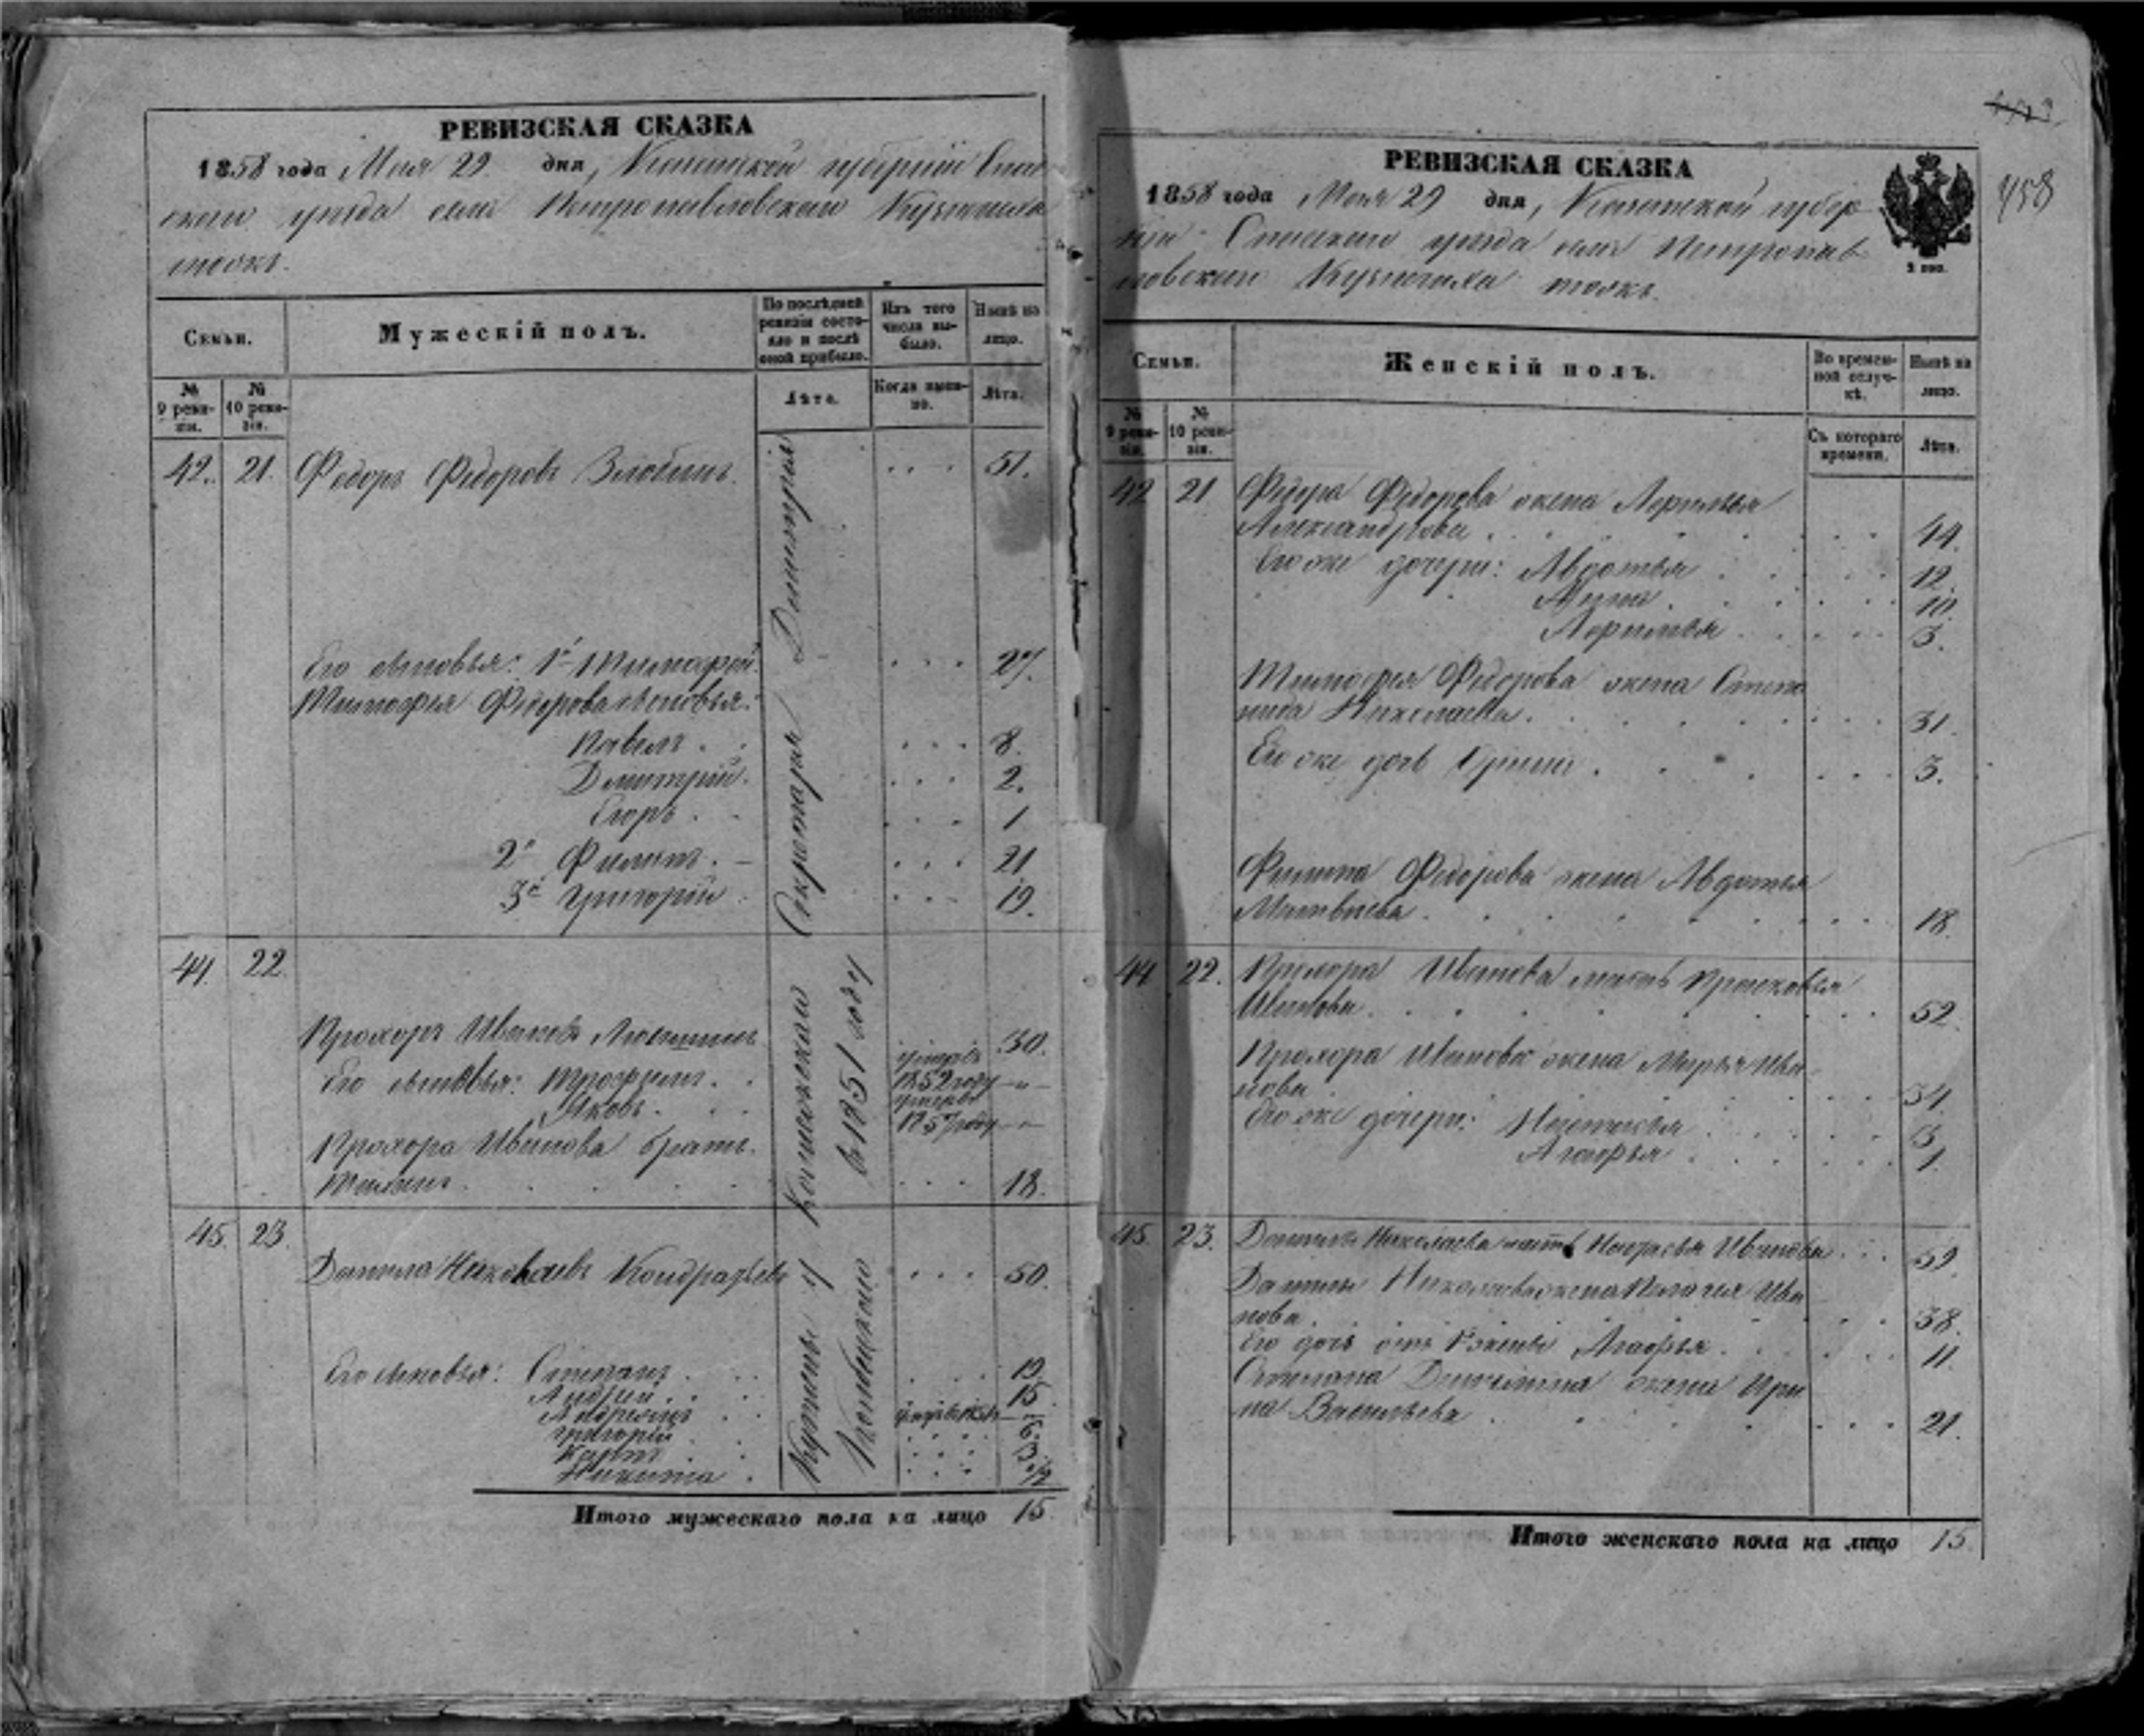 РЕВИЗСКАЯ СКАЗКА
1858 года Мая 29. дня, Казанской губернiи Спас-
скаго уѣзда села Петропавловскаго Кузнечиха
тожъ.
Семьи.
Мужескiй полъ.
По послѣдней ревизiи состо-
яло и послѣ оной прибыло.
Изъ того числа вы-
было.
Нынѣ на лицо.
№ 9 реви-
зiи.
№ 10 реви-
зiи.
Лѣта.
Когда имен-
но.
Лѣта.
42. 21. Федоръ Федоровъ Злобинъ. 51.
Его сыновья: 1й Тимофей. 27.
Тимофея Федорова сыновья:
Павелъ. 8.
Дмитрiй. 2.
Егоръ. 1
2й Филипъ. 21
3й Григорiй 19.
44. 22.
Прохоръ Ивановъ 30.
Его сыновья: Трофимъ. умеръ 1852 году -"-
Яковъ. умеръ 1857 году -"-
Прохора Иванова братъ
18.
45. 23.
Данила Николаевъ Кондратьевъ 50.
Его сыновья: Степанъ 19.
Андрей 15
Григорiй 6.
Карпъ 3.
Никита 1/2
Секретаря Дмитрiя
въ 1851 году
Итого мужескаго пола на лицо 15.
РЕВИЗСКАЯ СКАЗКА
1858 года Мая 29 дня, Казанской губер-
нiи Спасскаго уѣзда села Петропав-
ловскаго Кузнечиха тожъ.
2 коп.
458
Семьи.
Женскiй полъ.
Во времен-
ной отлуч-
кѣ.
Нынѣ на лицо.
№ 9 реви-
зiи.
№ 10 реви-
зiи.
Съ котораго времени.
Лѣта.
42 21 Федора Федорова жена
Александрова 44.
Его же дочери: Авдотья 12.
Анна 10.
3.
Тимофея Федорова жена Степа-
нида Николаева. 31.
Его же дочь Ирина 3.
Филипа Федорова жена Авдотья
Матвѣева 18.
44 22. Прохора Иванова мать Прасковья
Иванова 52.
Прохора Иванова жена Марья Ива-
нова 34.
Его же дочери: Настасья 3.
Агафья 1.
45. 23. Данилы Николаева мать Настасья Иванова 59.
Данилы Николаева жена Пелагея Ива-
нова 38.
Его дочь отъ 1 жены Агафья 11.
Степана Данилина жена Ири-
на Васильева 21.
Итого женскаго пола на лицо 15